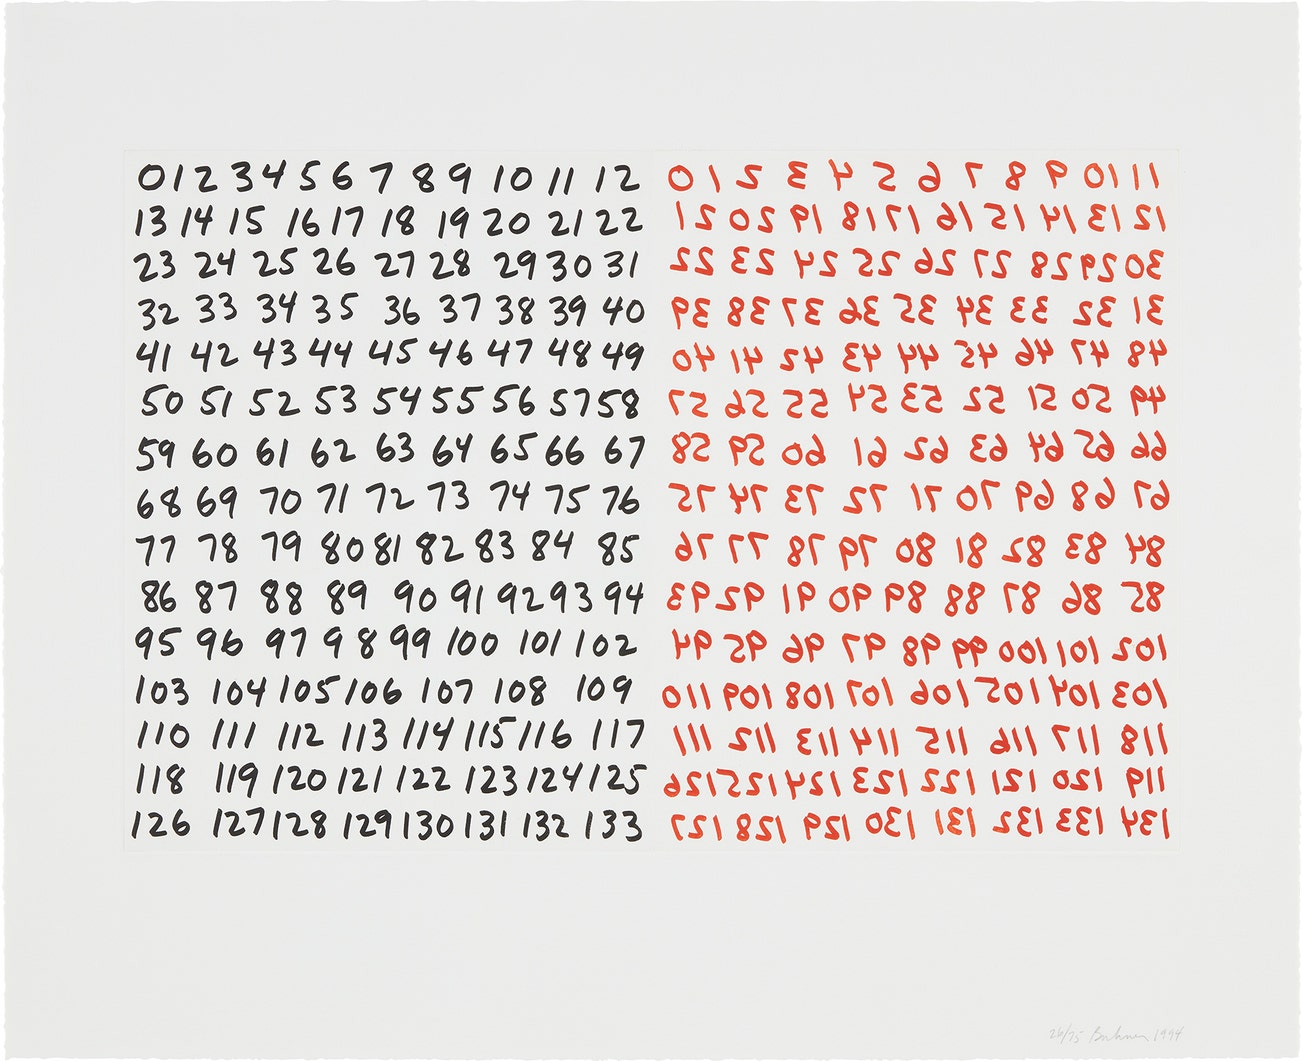 0 1 2 3 4 5 6 7 8 9 10 11 12
13 14 15 16 17 18 19 20 21 22
23 24 25 26 27 28 29 30 31
32 33 34 35 36 37 38 39 40
41 42 43 44 45 46 47 48 49
50 51 52 53 54 55 56 57 58
59 60 61 62 63 64 65 66 67
68 69 70 71 72 73 74 75 76
77 78 79 80 81 82 83 84 85
86 87 88 89 90 91 92 93 94
95 96 97 98 99 100 101 102
103 104 105 106 107 108 109
110 111 112 113 114 115 116 117
118 119 120 121 122 123 124 125
126 127 128 129 130 131 132 133
0 1 2 3 4 5 6 7 8 9 10 11
21 20 19 18 17 16 15 14 13 12
22 23 24 25 26 27 28 29 30
39 38 37 36 35 34 33 32 31
40 41 42 43 44 45 46 47 48
57 56 55 54 53 52 51 50 49
58 59 60 61 62 63 64 65 66
75 74 73 72 71 70 69 68 67
76 77 78 79 80 81 82 83 84
93 92 91 90 89 88 87 86 85
94 95 96 97 98 99 100 101 102
110 109 108 107 106 105 104 103
111 112 113 114 115 116 117 118
126 125 124 123 122 121 120 119
127 128 129 130 131 132 133 134
26/75 Bochner 1994